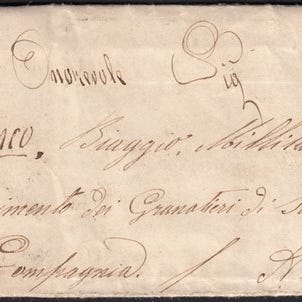 Onorevole Sig
nco, Biaggio, Millita
imento dei Granatieri di S
Compagnia. /